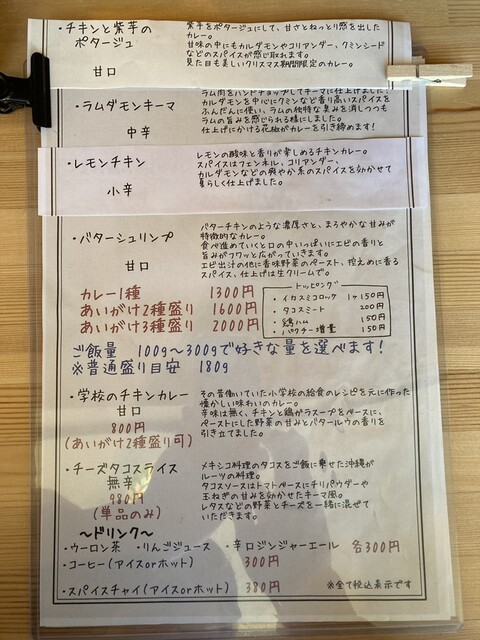 ・チキンと紫芋の
ポタージュ
甘口
紫芋をポタージュにして、甘さとねっとり感を出した
カレー。
甘味の中にもカルダモンやコリアンダー、クミンシード
などのスパイスが感じ取れます。
見た目も美しいクリスマス期間限定のカレー。
・ラムダモンキーマ
中辛
ラム肉をハンドチョップしてキーマに仕上げました!
カルダモンを中心にクミンなど香り高いスパイスを
ふんだんに使い、ラムの独特な臭みを消しつつも
ラムの旨みを感じられる様にしました。
仕上げにかける花椒がカレーを引き締めます!
・レモンチキン
小辛
レモンの酸味と香りが楽しめるチキンカレー。
スパイスはフェンネル、コリアンダー、
カルダモンなどの爽やか系のスパイスを効かせて
夏らしく仕上げました。
・バターシュリンプ
甘口
バターチキンのような濃厚さと、まろやかな甘みが
特徴的なカレー。
食べ進めていくと口の中いっぱいにエビの香りと
旨みがフワッと広がっていきます。
エビ出汁の他に香味野菜のペースト、控えめに香る
スパイス、仕上は生クリームで。
カレー1種 1300円
あいがけ2種盛り 1600円
あいがけ3種盛り 2000円
トッピング
・イカスミコロッケ 1ヶ150円
・タコスミート 200円
・鶏ハム 150円
・パクチー増量 150円
ご飯量 100g~300gで好きな量を選べます!
※普通盛り目安 180g
・学校のチキンカレー
甘口
800円
(あいがけ2種盛り可)
その昔働いていた小学校の給食のレシピを元に作った
懐かしい味わいのカレー。
辛味は無く、チキンと鶏がらスープをベースに、
ペーストにした野菜の甘みとバタールウの香りを
引き立てました。
・チーズタコスライス
無辛
980円
(単品のみ)
メキシコ料理のタコスをご飯に乗せた沖縄が
ルーツの料理。
タコスソースはトマトベースにチリパウダーや
玉ねぎの甘みを効かせたキーマ風。
レタスなどの野菜とチーズを一緒に混ぜて
いただきます。
~ドリンク~
・ウーロン茶 ・りんごジュース ・辛口ジンジャーエール 各300円
・コーヒー(アイスorホット) 300円
・スパイスチャイ(アイスorホット) 380円
※全て税込表示です